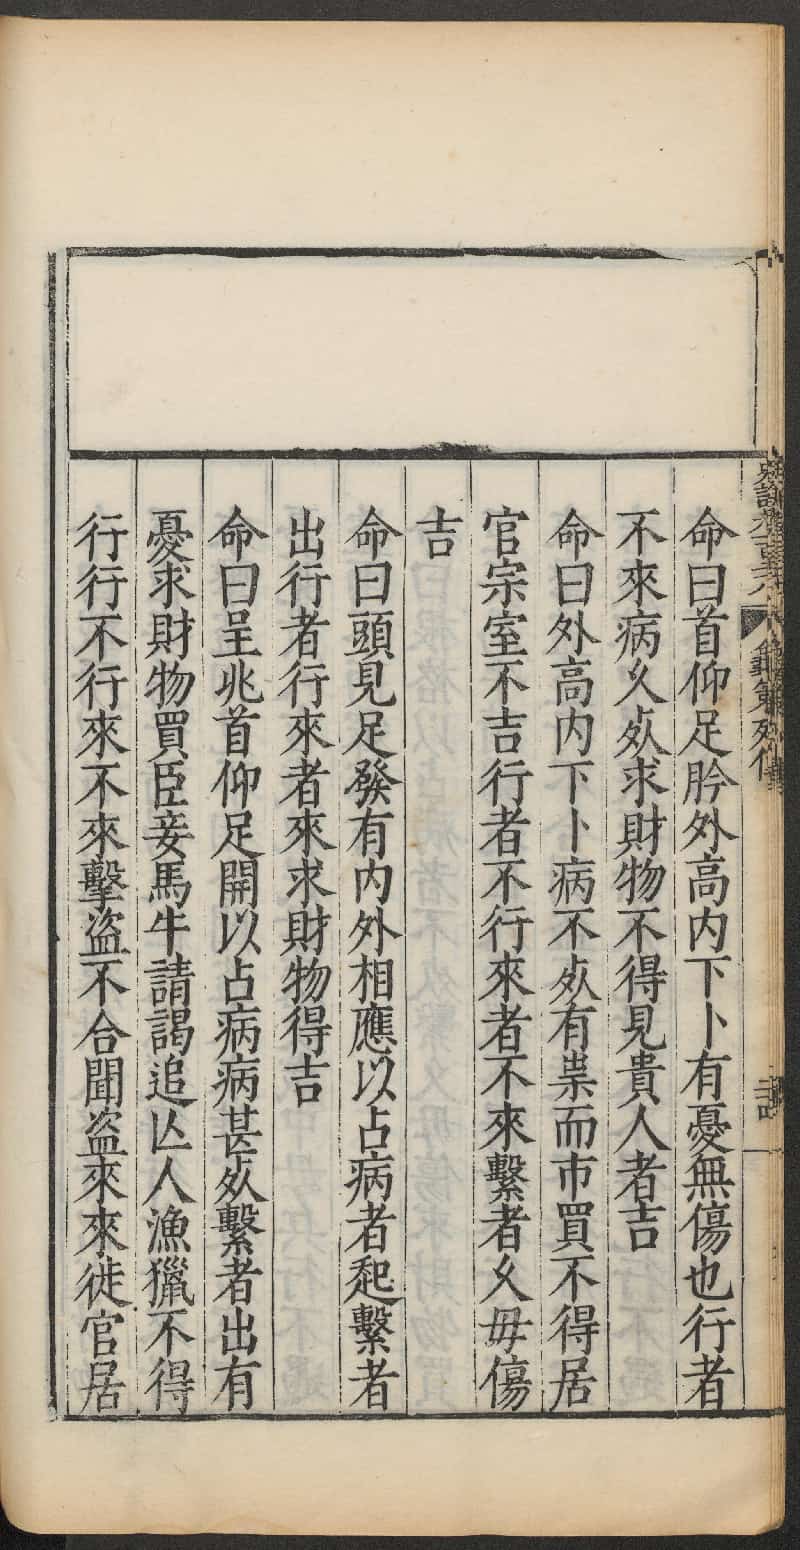 命曰首仰足肣外高内下卜有憂無傷也行者
不來病乆𣦸求財物不得見貴人者吉
命曰外高内下卜病不𣦸有祟而市買不得居
官宗室不吉行者不行來者不來繫者乆毋傷
吉
命曰頭見足發有内外相應以占病者起繫者
出行者行來者來求財物得吉
命曰呈兆首仰足開以占病病甚𣦸繫者出有
憂求財物買臣妾馬牛請謁追亾人漁獵不得
行行不行來不來擊盜不合聞盜來來徙官居
龜策列傳